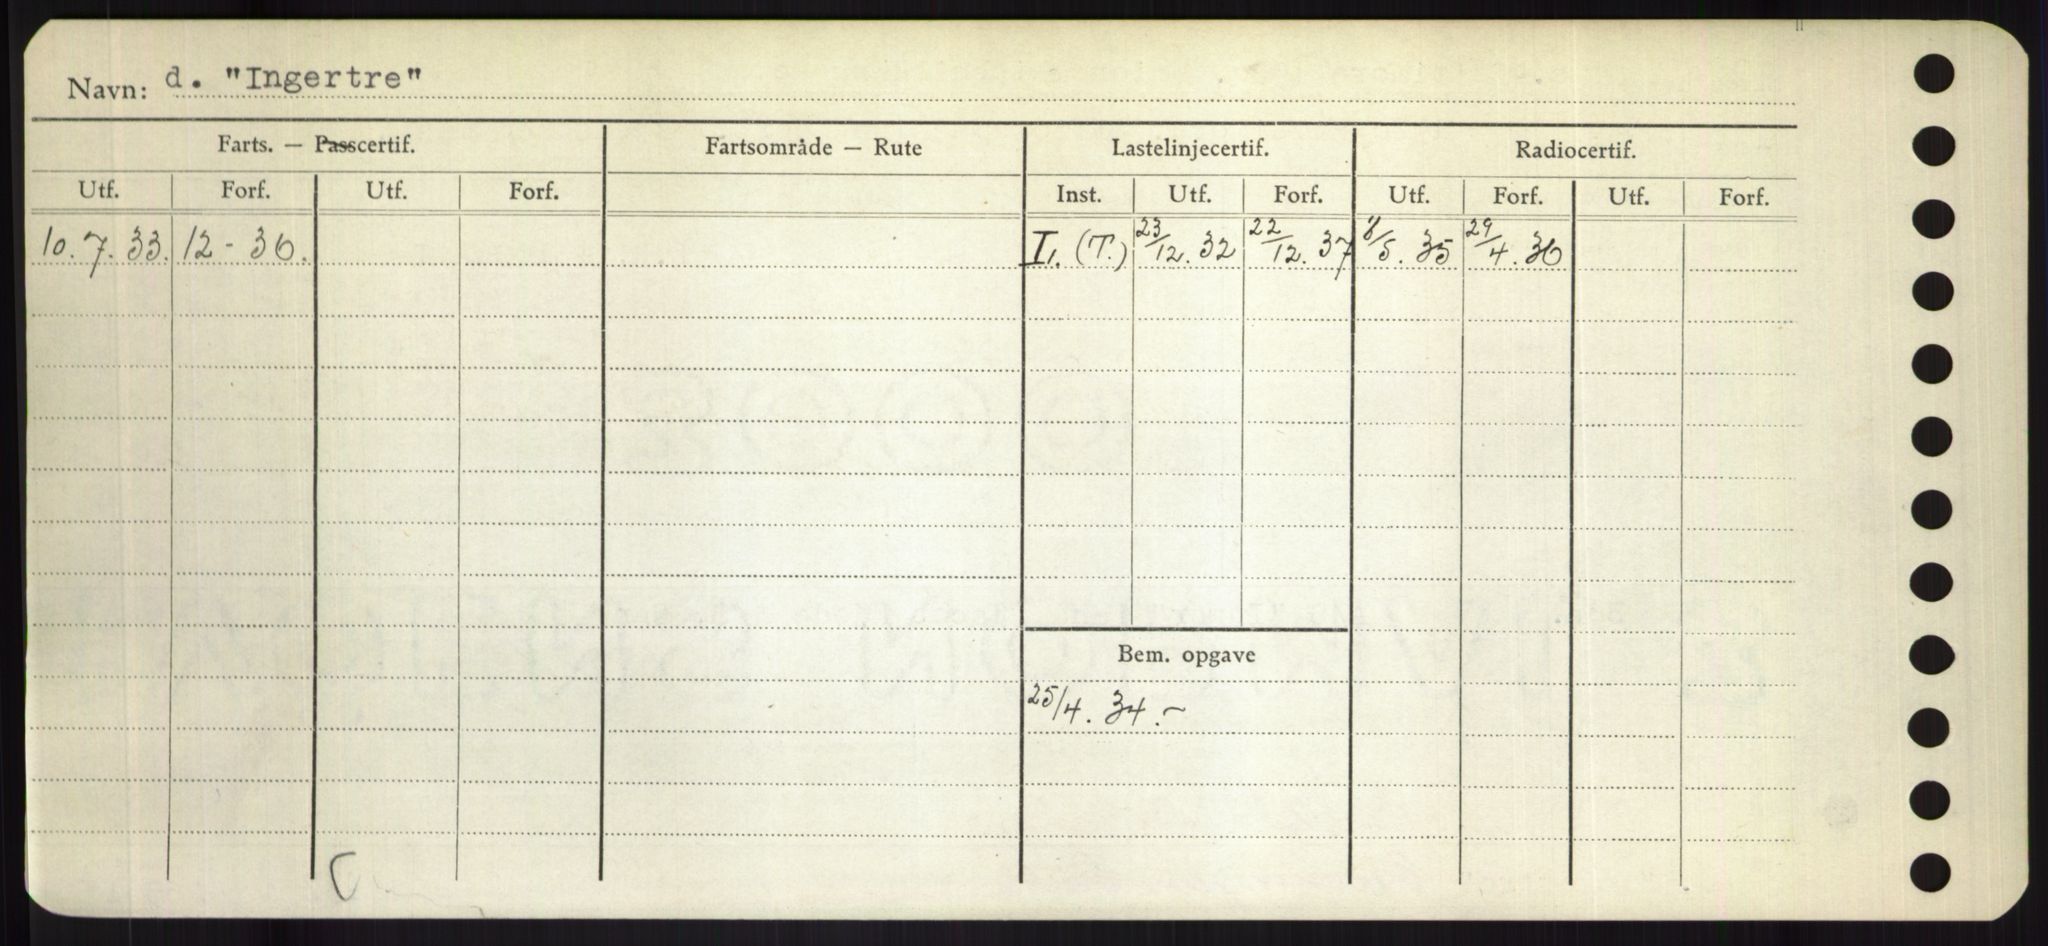 Navn: d. "Ingertre"
Farts. — Passcertif. Fartsområde — Rute Lastelinjecertif. Radiocertif.
Utf. Forf. Utf. Forf. Inst. Utf. Forf. Utf. Forf. Utf. Forf.
10.7.33. 12-36. I. (T.) 23/12.32 22/12.37 8/5.35 29/4.36
Bem. opgave
25/4.34.-